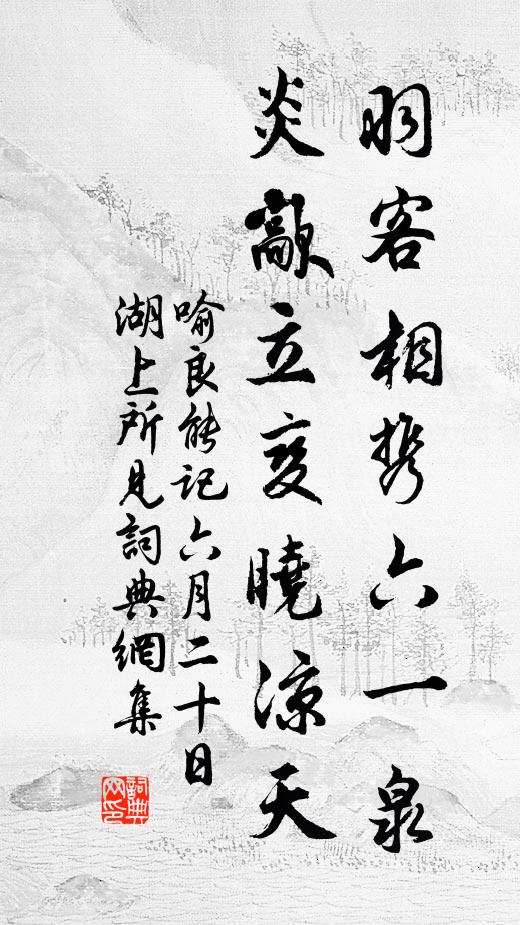 羽客相携六一泉
炎歊立变曉涼天
喻良能记六月二十日
湖上所见詞典網集
詞典
网印